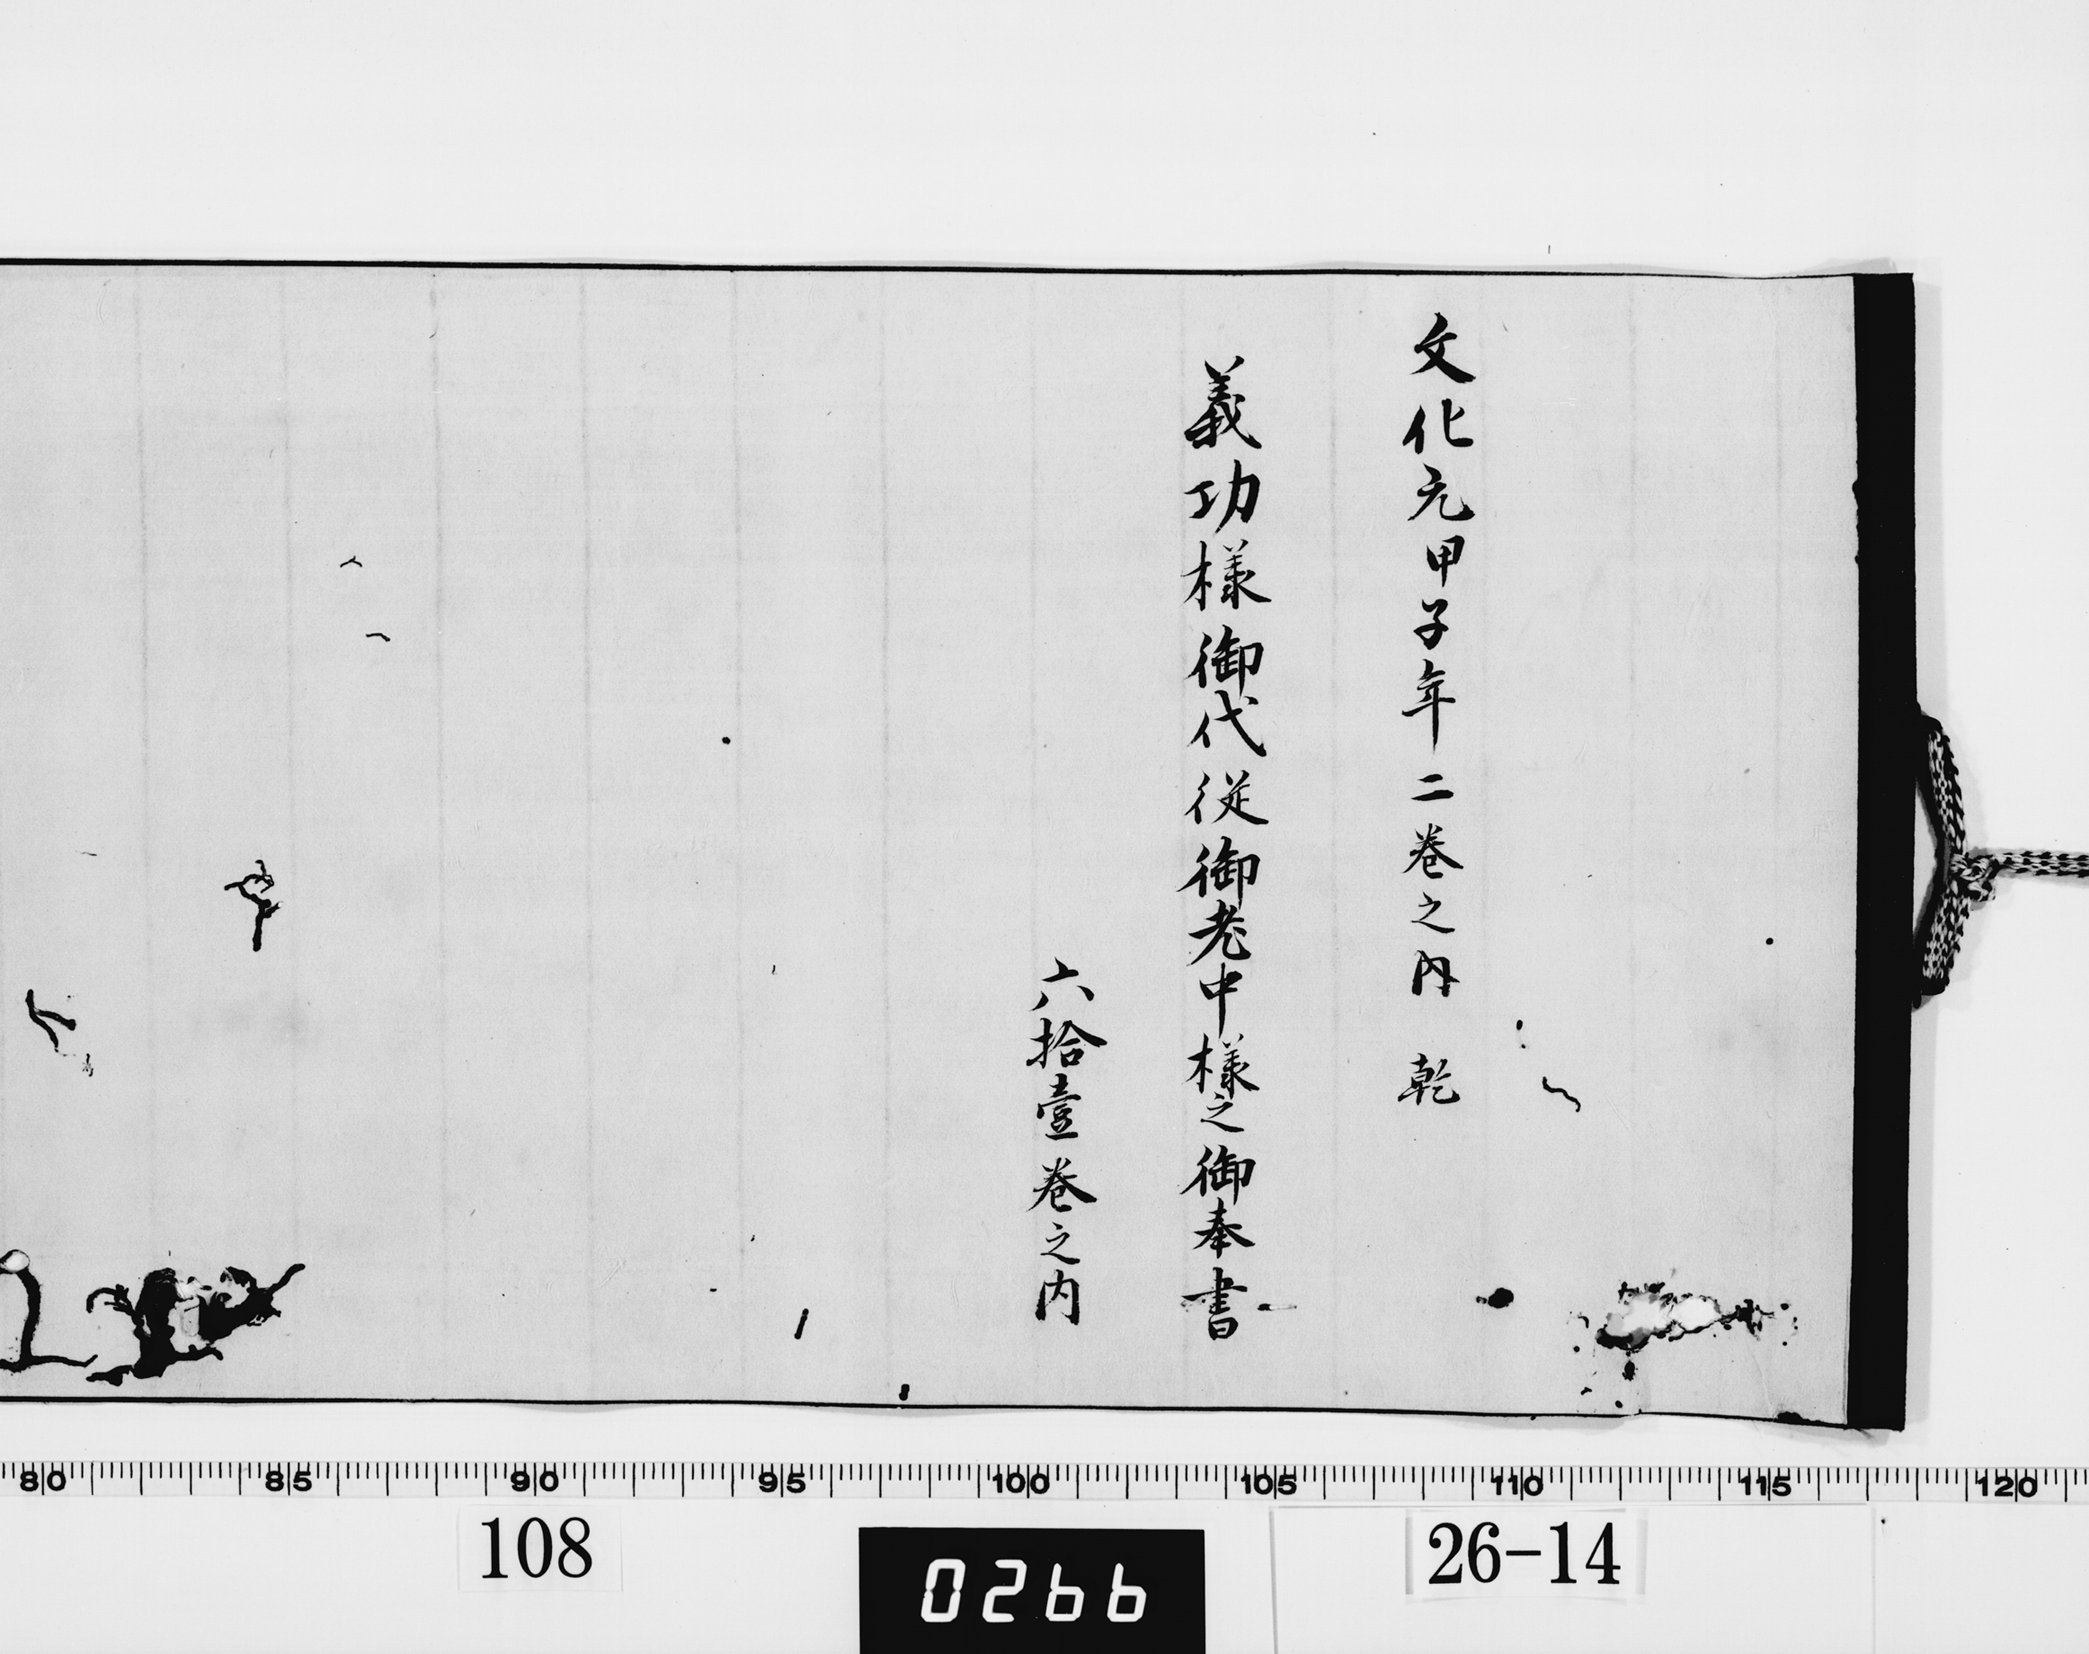 文化元甲子年二巻之内 乾
義功様御代従御老中様之御奉書
六拾壹巻之内
80 85 90 95 100 105 110 115 120
108
0266
26-14